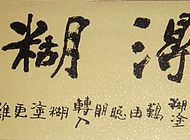 得糊
糊塗難由聰明轉入糊塗更難